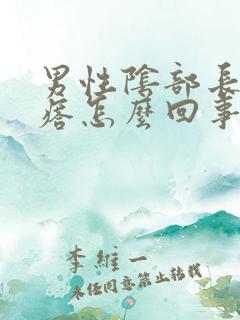 男性陰部長
瘩怎麼回事
李維一
未任同意禁止转载